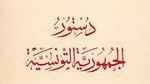 دستور
الجمهورية التونسية